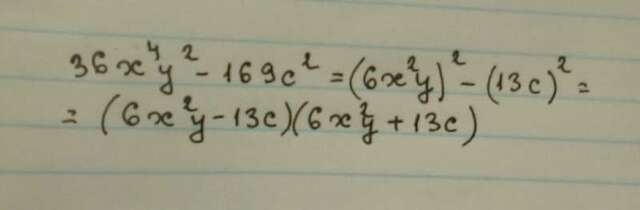 36x⁴y² - 169c² = (6x²y)² - (13c)² =
= (6x²y - 13c)(6x²y + 13c)